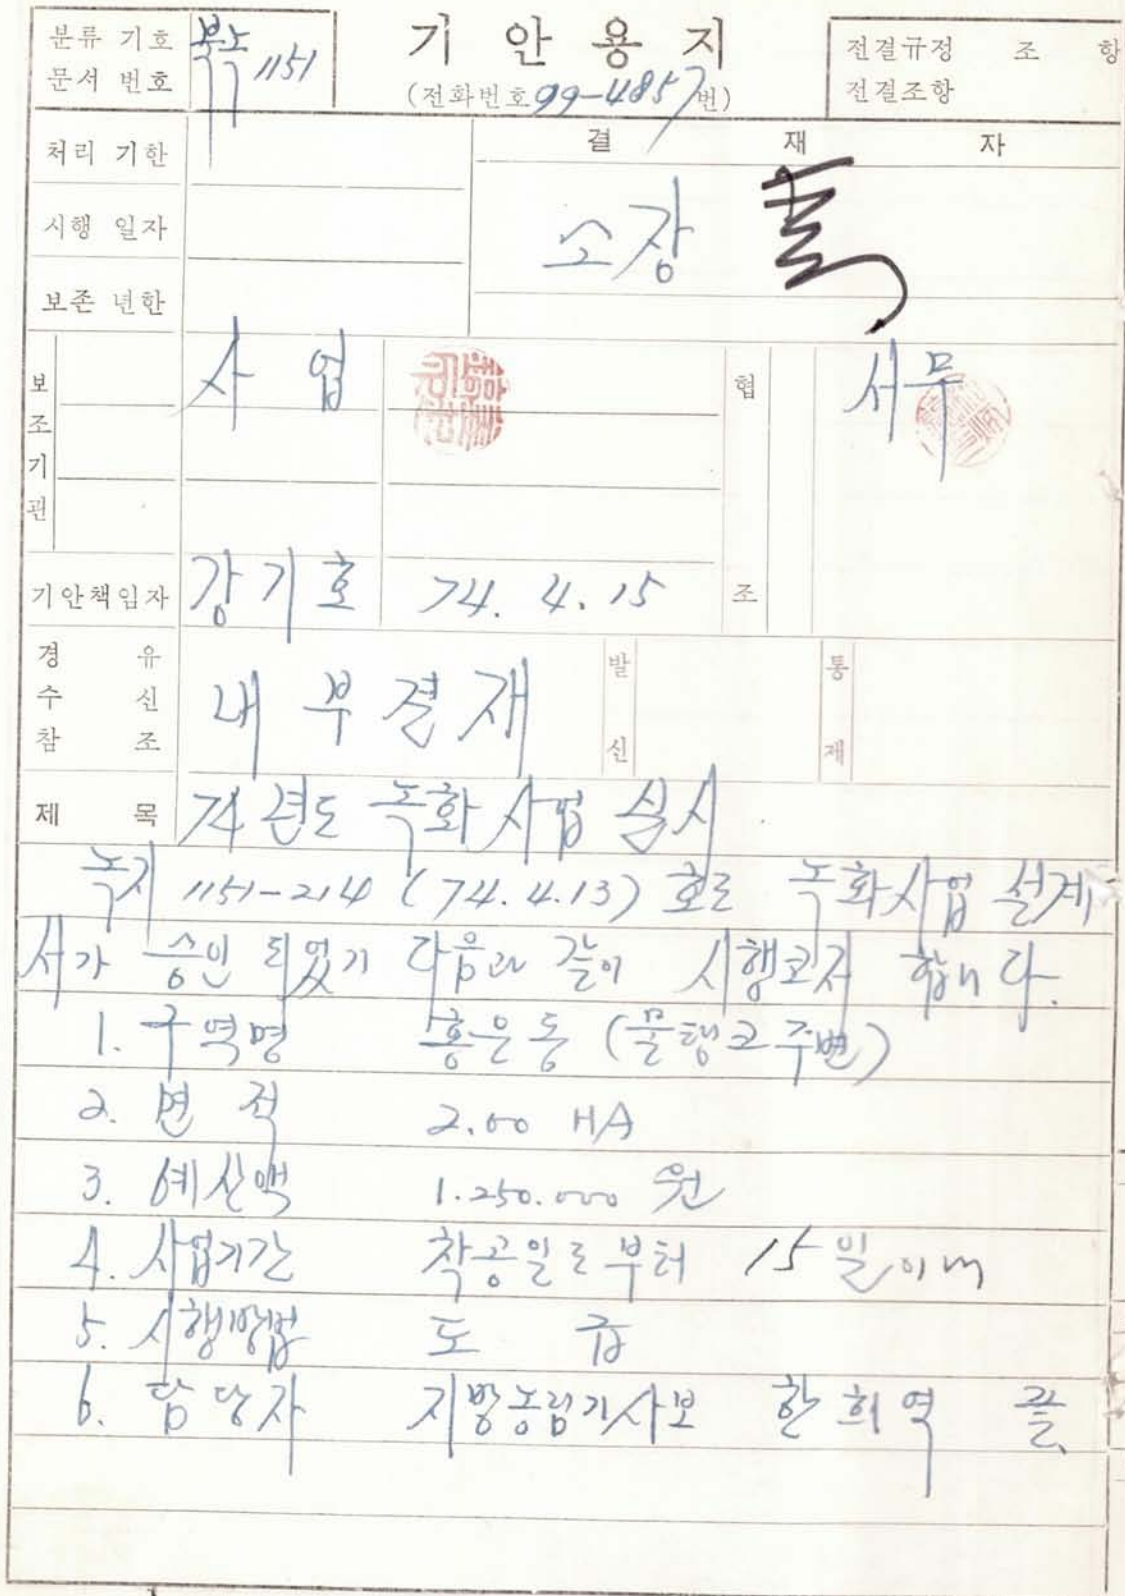 분류 기호 문서 번호 북노 1151
기 안 용 지
(전화번호 99-4857번)
전결규정 조 항
전결조항
처리 기한
시행 일자
보존 년한
결 재 자
소장
보조기관
사 업
협조
서무
기안책임자 강기호 74. 4. 15
경 유
수 신
참 조
내부결재
발신
통제
제 목 74년도 녹화사업 실시
녹지 1151-214 (74.4.13) 호로 녹화사업 설계
서가 승인 되었기 다음과 같이 시행코저 합니다.
1. 구역명 홍은동 (물탱크주변)
2. 면 적 2.00 HA
3. 예산액 1.250.000 원
4. 사업기간 착공일로 부터 15일이내
5. 시행방법 도 급
6. 담당자 지방농림기사보 한희역 끝.